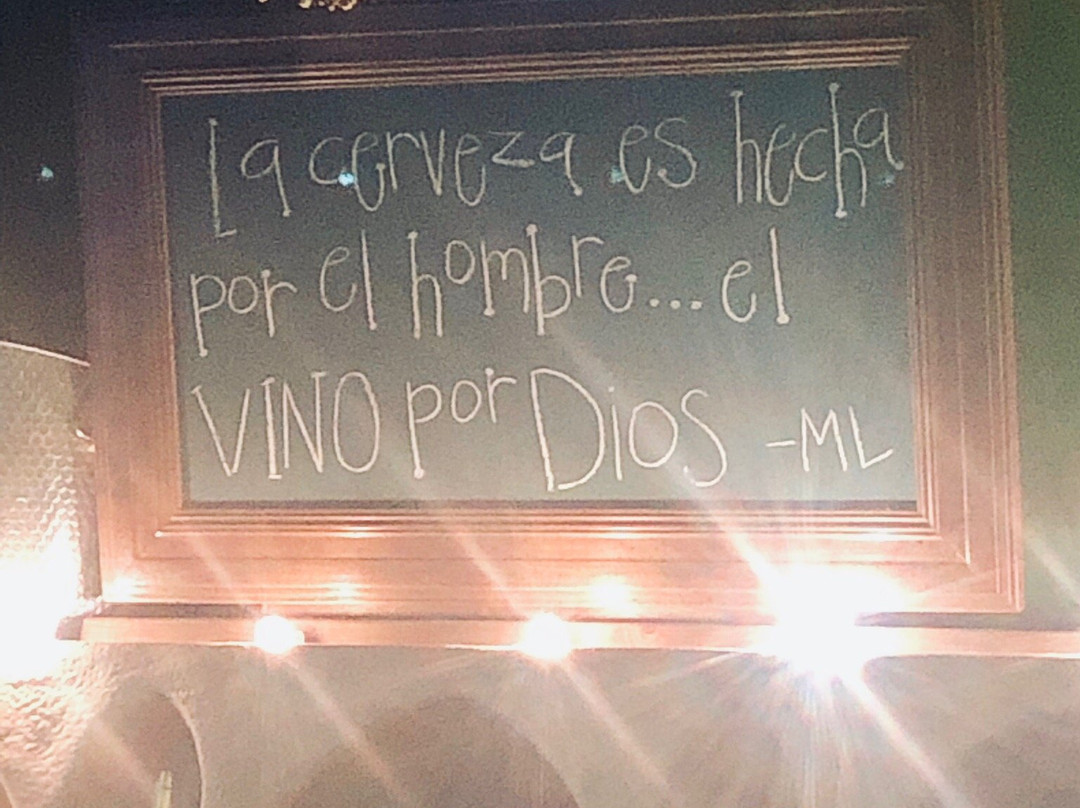 La cerveza es hecha
por el hombre... el
VINO por Dios -ML